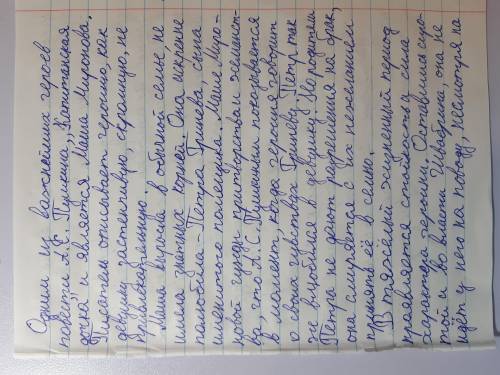 Одним из важнейших героев
повести А.С. Пушкина „Капитанская
дочка" и является Маша Миронова.
Писатель описывает героиню, как
девушку застенчивую, скромную, не
приукрашенную.
Маша выросла в обычной семье, не
имела знатных корней. Она искренне
полюбила Петра Гринёва, сына
именитого помещика. Маше Миро-
новой чуждо притворство и жеманст-
во, что А.С. Пушкиным показывается
в момент, когда героиня говорит
о своих чувствах Гринёву. Пётр так
же влюбился в девушку. Но родители
Петра не дают разрешения на брак,
она смиряется с их нежеланием
принять её в семью.
В тяжёлый жизненный период
проявляется стойкость и сила
характера героини. Оставшись сиро-
той и во власти Швабрина, она не
идёт у него на поводу, несмотря на